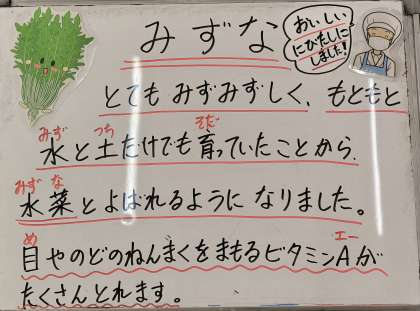 みずな
おいしい
にびたしに
しました！
とても みずみずしく、もともと
みず つち そだ
水と土だけでも育っていたことから、
みず な
水菜とよばれるようになりました。
め エー
目やのどのねんまくをまもるビタミンAが
たくさんとれます。